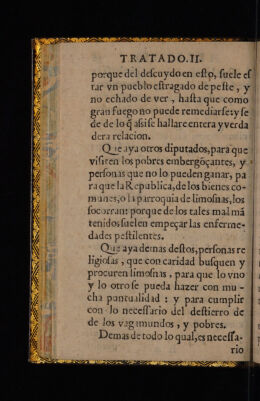 TRATADO. II.
porque del descuydo en esto, suele es
tar vn pueblo estragado de peste, y
no echado de ver, hasta que como
gran fuego no puede remediarse: y se
de de lo q̃ assi se hallare entera y verda
dera relacion.
Que aya otros diputados, para que
visiten los pobres embergõçantes, y
personas que no lo pueden ganar, pa
ra que la Republica, de los bienes co-
munes, o la parroquia de limosnas, los
socorran: porque de los tales mal mã
tenidos suelen empeçar las enferme-
dades pestilentes.
Que aya demas destos, personas re
ligiosas, que con caridad busquen y
procuren limosnas, para que lo vno
y lo otro se pueda hazer con mu-
cha puntualidad: y para cumplir
con lo necessario del destierro de
de los vagamundos, y pobres.
Demas de todo lo qual, es necessa-
rio